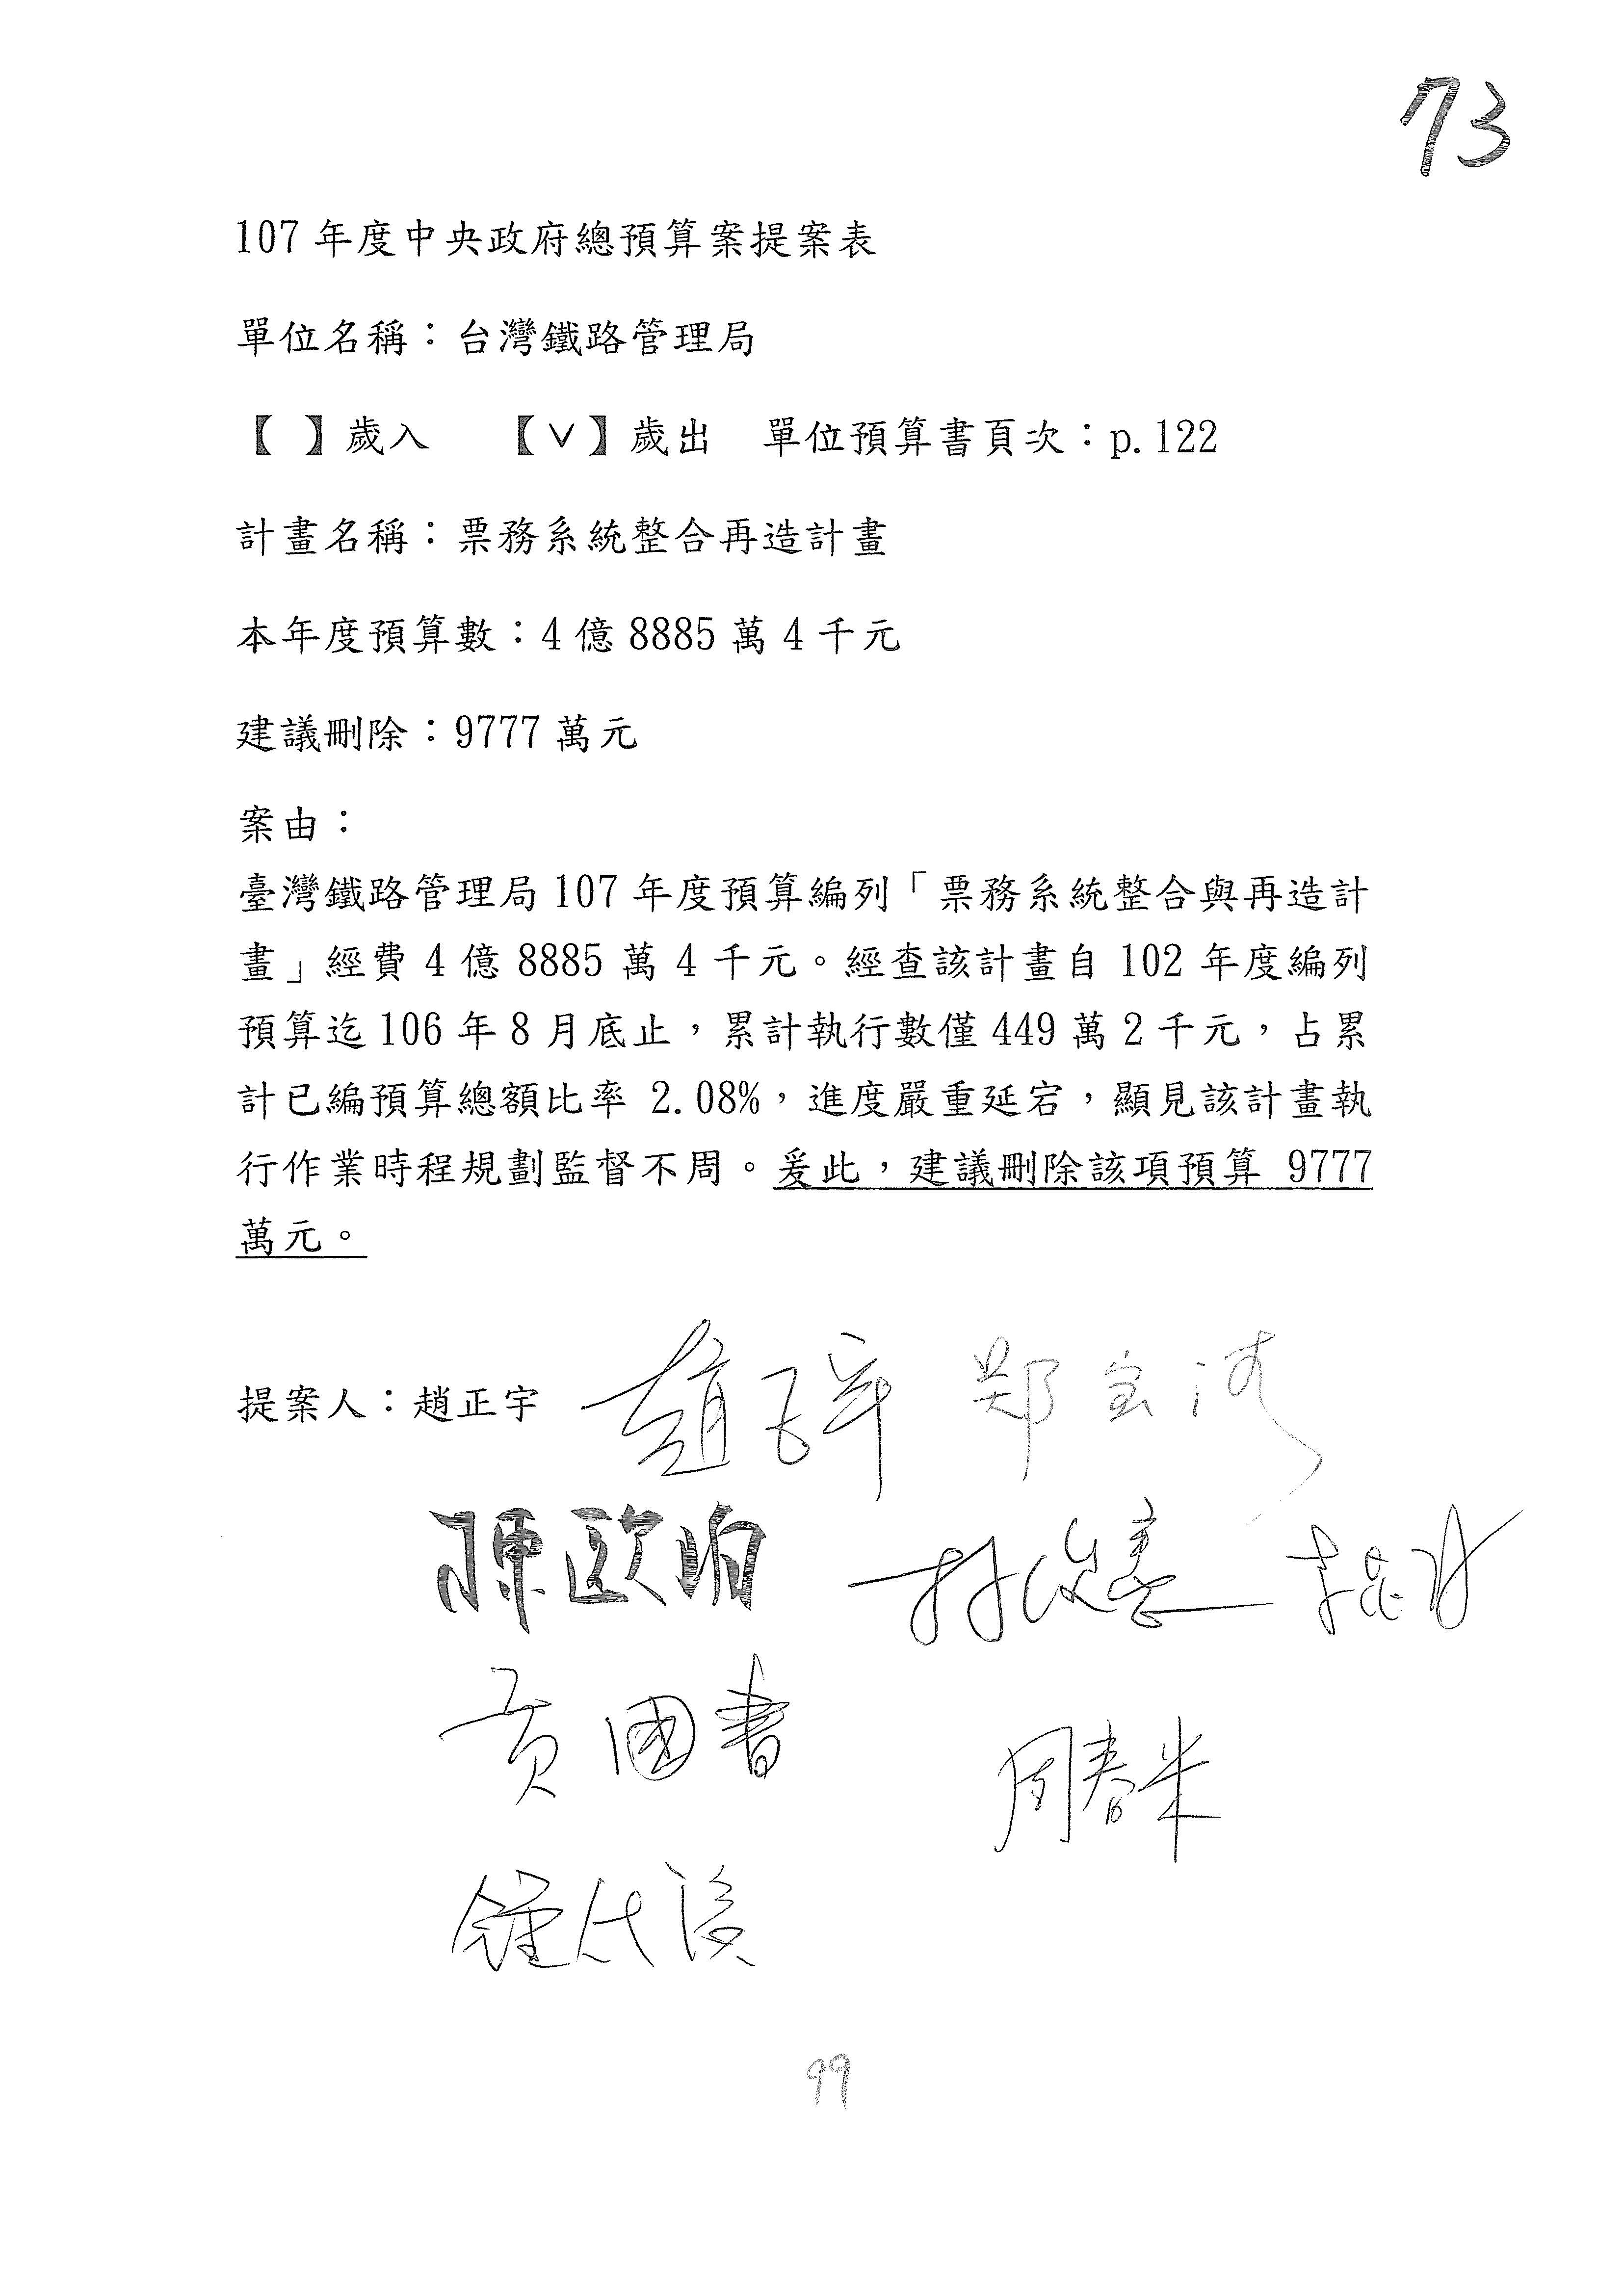 73
107 年度中央政府總預算案提案表
單位名稱：台灣鐵路管理局
【 】歲入 【∨】歲出 單位預算書頁次：p.122
計畫名稱：票務系統整合再造計畫
本年度預算數：4 億 8885 萬 4 千元
建議刪除：9777 萬元
案由：
臺灣鐵路管理局 107 年度預算編列「票務系統整合與再造計
畫」經費 4 億 8885 萬 4 千元。經查該計畫自 102 年度編列
預算迄 106 年 8 月底止，累計執行數僅 449 萬 2 千元，占累
計已編預算總額比率 2.08%，進度嚴重延宕，顯見該計畫執
行作業時程規劃監督不周。爰此，建議刪除該項預算 9777
萬元。
提案人：趙正宇 趙正宇 鄭宝清
陳歐珀 林俊憲 李昆澤
黃國書
周春米
鍾佳濱
99